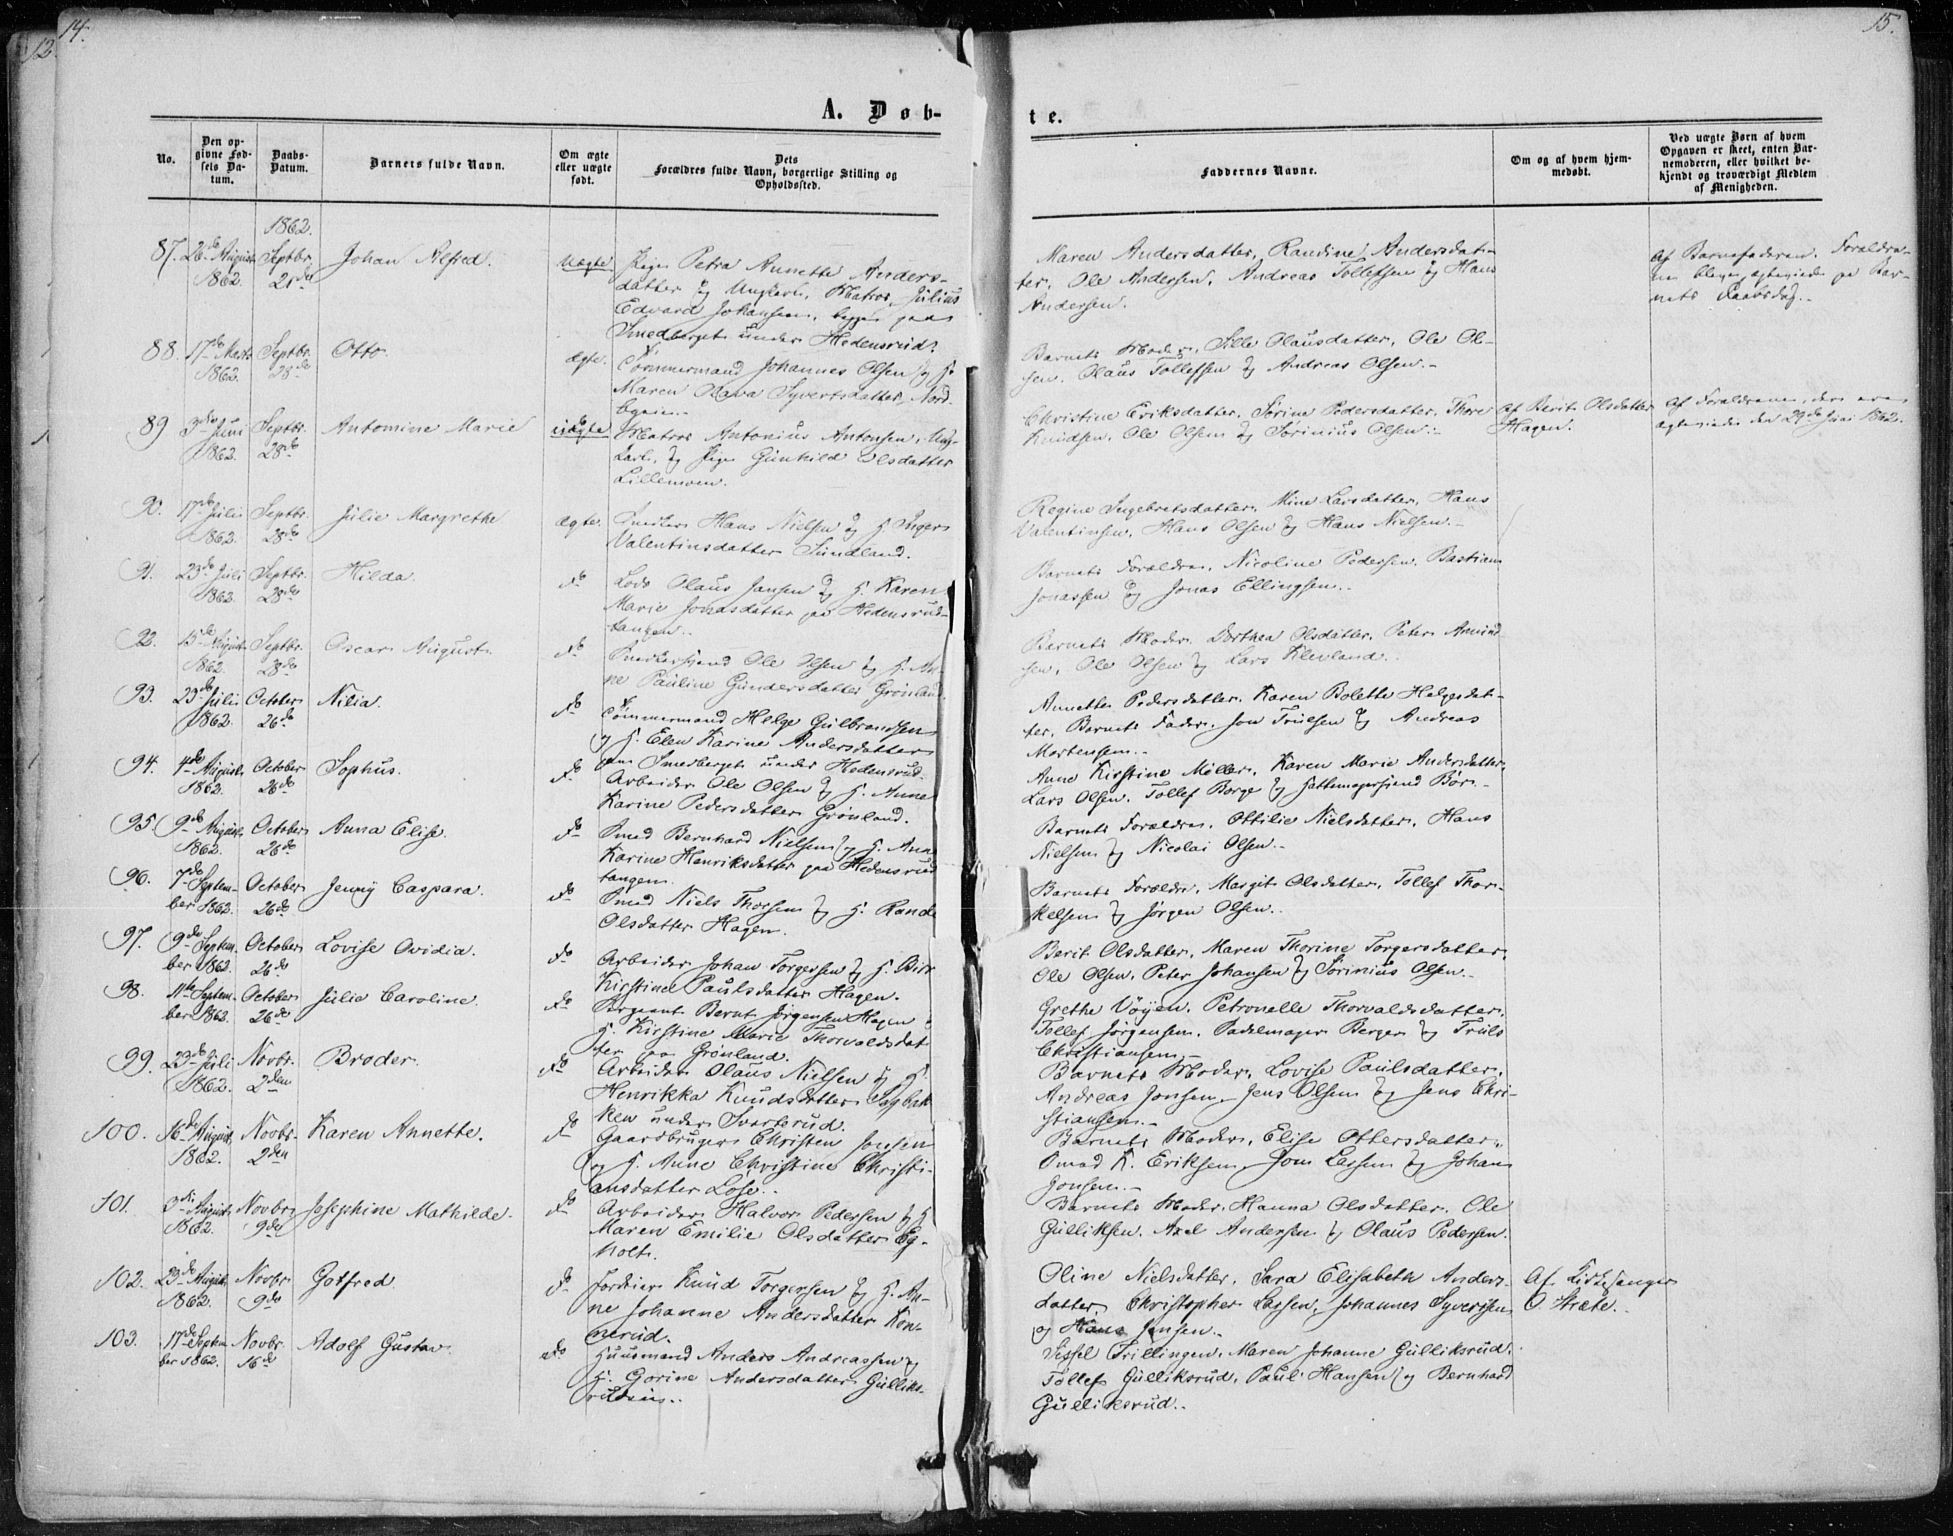 14.
12
15.
A. Døb-
te.
No.
Den op-
givne Fød-
sels Da-
tum.
Daabs-
Datum.
Barnets fulde Navn.
Om ægte
eller uægte
født.
Dets
Forældres fulde Navn, borgerlige Stilling og
Opholdssted.
Faddernes Navne.
Om og af hvem hjem-
medøbt.
Ved uægte Børn af hvem
Opgaven er skeet, enten Bar-
nemoderen, eller hvilket be-
kjendt og troværdigt Medlem
af Menigheden.
1862.
87. 26de August
1862.
Septbr.
21de
Johan Alfred.
Uægte
Pige Petra Annette Anders-
datter og Ungkarl, Matros, Julius
Edvard Johansen, begge paa
Smedberget under Hedensrud.
Maren Andersdatter, Randine Andersdat-
ter, Ole Andersen, Andreas Tollefsen og Hans
Andersen.
Af Barnefaderen. Forældre-
ne bleve ægteviede på Bar-
nets Daabsdag.
88. 17de Marts
1862.
Septbr.
28de
Otto.
Ægte.
Tømmermand Johannes Olsen og H.
Maren Syvertsdatter, Nord-
byeien.
Barnets Moder, Sille Olausdatter, Ole Ol-
sen, Olaus Tollefsen og Andreas Olsen.
89 3die Juni
1862.
Septbr.
28de
Antonine Marie
uægte
Matros Antonius Antonsen, Ung-
karl, og Pige Gunhild Olsdatter
Lillemoen.
Christine Eriksdatter, Sørine Pedersdatter, Thore
Knudsen, Ole Olsen og Sørinius Olsen.
Af Berit Olsdatter
Hagen.
Af Forældrene, der ere
ægteviede den 29de Juni 1862.
90. 17de Juli
1862.
Septbr.
28de
Julie Margrethe
Ægte.
Snedker Hans Nielsen og H. Inger
Valentinsdatter Sundland.
Regine Ingebretsdatter, Mine Larsdatter, Hans
Valentinsen, Hans Olsen og Hans Nielsen.
91. 23de Juli
1862.
Septbr.
28de
Hilda.
do
Lods Olaus Jansen og H. Karen
Marie Jonasdatter paa Hedensrud-
tangen.
Barnets Forældre, Nicoline Pedersen, Bastian
Jonassen og Jonas Ellingsen.
92. 15de August
1862.
Septbr.
28de
Oscar August.
do
Snedkersvend Ole Olsen og H. An-
ne Pauline Gundersdatter Grønland.
Barnets Moder, Dorthea Olsdatter, Peter Amund-
sen, Ole Olsen og Lars Klevland.
93. 23de Juli
1862.
October
26de
Nilia.
do
Tømmermand Helge Gulbrandsen
og H. Elen Karine Andersdatter
paa Smedberget under Hedensrud.
Annette Pedersdatter, Karen Bolette Helgesdat-
ter, Barnets Fader, Jon Truelsen og Andreas
Mortensen.
94. 4de August
1862.
October
26de
Sophus.
do
Arbeider Ole Olsen og H. Anne
Karine Pedersdatter Grønland.
Anne Kirstine Møller, Karen Marie Andersdatter,
Lars Olsen, Tollef Borge og Hattemagersvend Bør.
95. 9de August
1862.
October
26de
Anna Elise.
do
Smed Bernhard Nielsen og H. Anne
Karine Henriksdatter paa Hedensrud
tangen.
Barnets Forældre, Ottilie Nielsdatter, Hans
Nielsen og Nicolai Olsen.
96. 7de Septem-
ber 1862.
October
26de
Jenny Caspara.
do
Smed Niels Thorsen og H. Randi
Olsdatter Hagen.
Barnets Forældre, Margit Olsdatter, Tollef Thor-
kelsen og Jørgen Olsen.
97. 9de Septem-
ber 1862.
October
26de
Lovise Ovidia.
do
Arbeider Johan Torgersen og H. Birt
Kirstine Paulsdatter Hagen.
Berit Olsdatter, Maren Thorine Torgersdatter,
Ole Olsen, Peter Johansen og Sørinius Olsen.
98. 11te Septem-
ber 1862.
October
26de
Julie Caroline.
do
Sergeant Bernt Jørgensen Hagen og
H. Kirstine Marie Thorvaldsdat-
ter paa Grønland.
Grethe Vøyen, Petronelle Thorvaldsdatter,
Tollef Jørgensen, Sadelmager Berger og Truls
Christiansen.
99. 23de Juli
1862.
Novbr.
2den
Broder.
do
Arbeider Olaus Nielsen og H.
Henrikka Knudsdatter Sagbak-
ken under Svarterud.
Barnets Moder, Lovise Paulsdatter,
Andreas Jonsen, Jens Olsen og Jens Chri-
stiansen.
100. 16de August
1862.
Novbr.
2den
Karen Annette.
do
Gaardbruger Christen Jonsen
og H. Anne Christine Christi-
ansdatter Lose.
Barnets Moder, Elise Ottersdatter,
Smed K. Eriksen, Jon Lassen og Johan
Jonsen.
101. 3die August
1862.
Novbr.
9de
Josephine Mathilde.
do
Arbeider Halvor Pedersen og H.
Maren Emilie Olsdatter Eg-
holt.
Barnets Moder, Hanna Olsdatter, Ole
Gulliksen, Axel Andersen og Olaus Pedersen.
102. 23de August
1862.
Novbr.
9de
Gotfred
do
Jordeier Knud Torgersen og H. An-
ne Johanne Andersdatter Kon-
nerud.
Oline Nielsdatter, Sara Elisabeth Anders-
datter, Christopher Lassen, Johannes Syvertsen
og Hans Jensen.
Af Kirkesanger
O. Stræte.
103. 17de Septem
ber 1862.
Novbr.
16de
Adolf Gustav.
do
Huusmand Anders Andreassen og
H. Gorine Andersdatter Gulliks-
rudeie.
Sissel Trillingen, Maren Johanne Gulliksrud,
Tollef Gulliksrud, Paul Hansen og Bernhard
Gulliksrud.